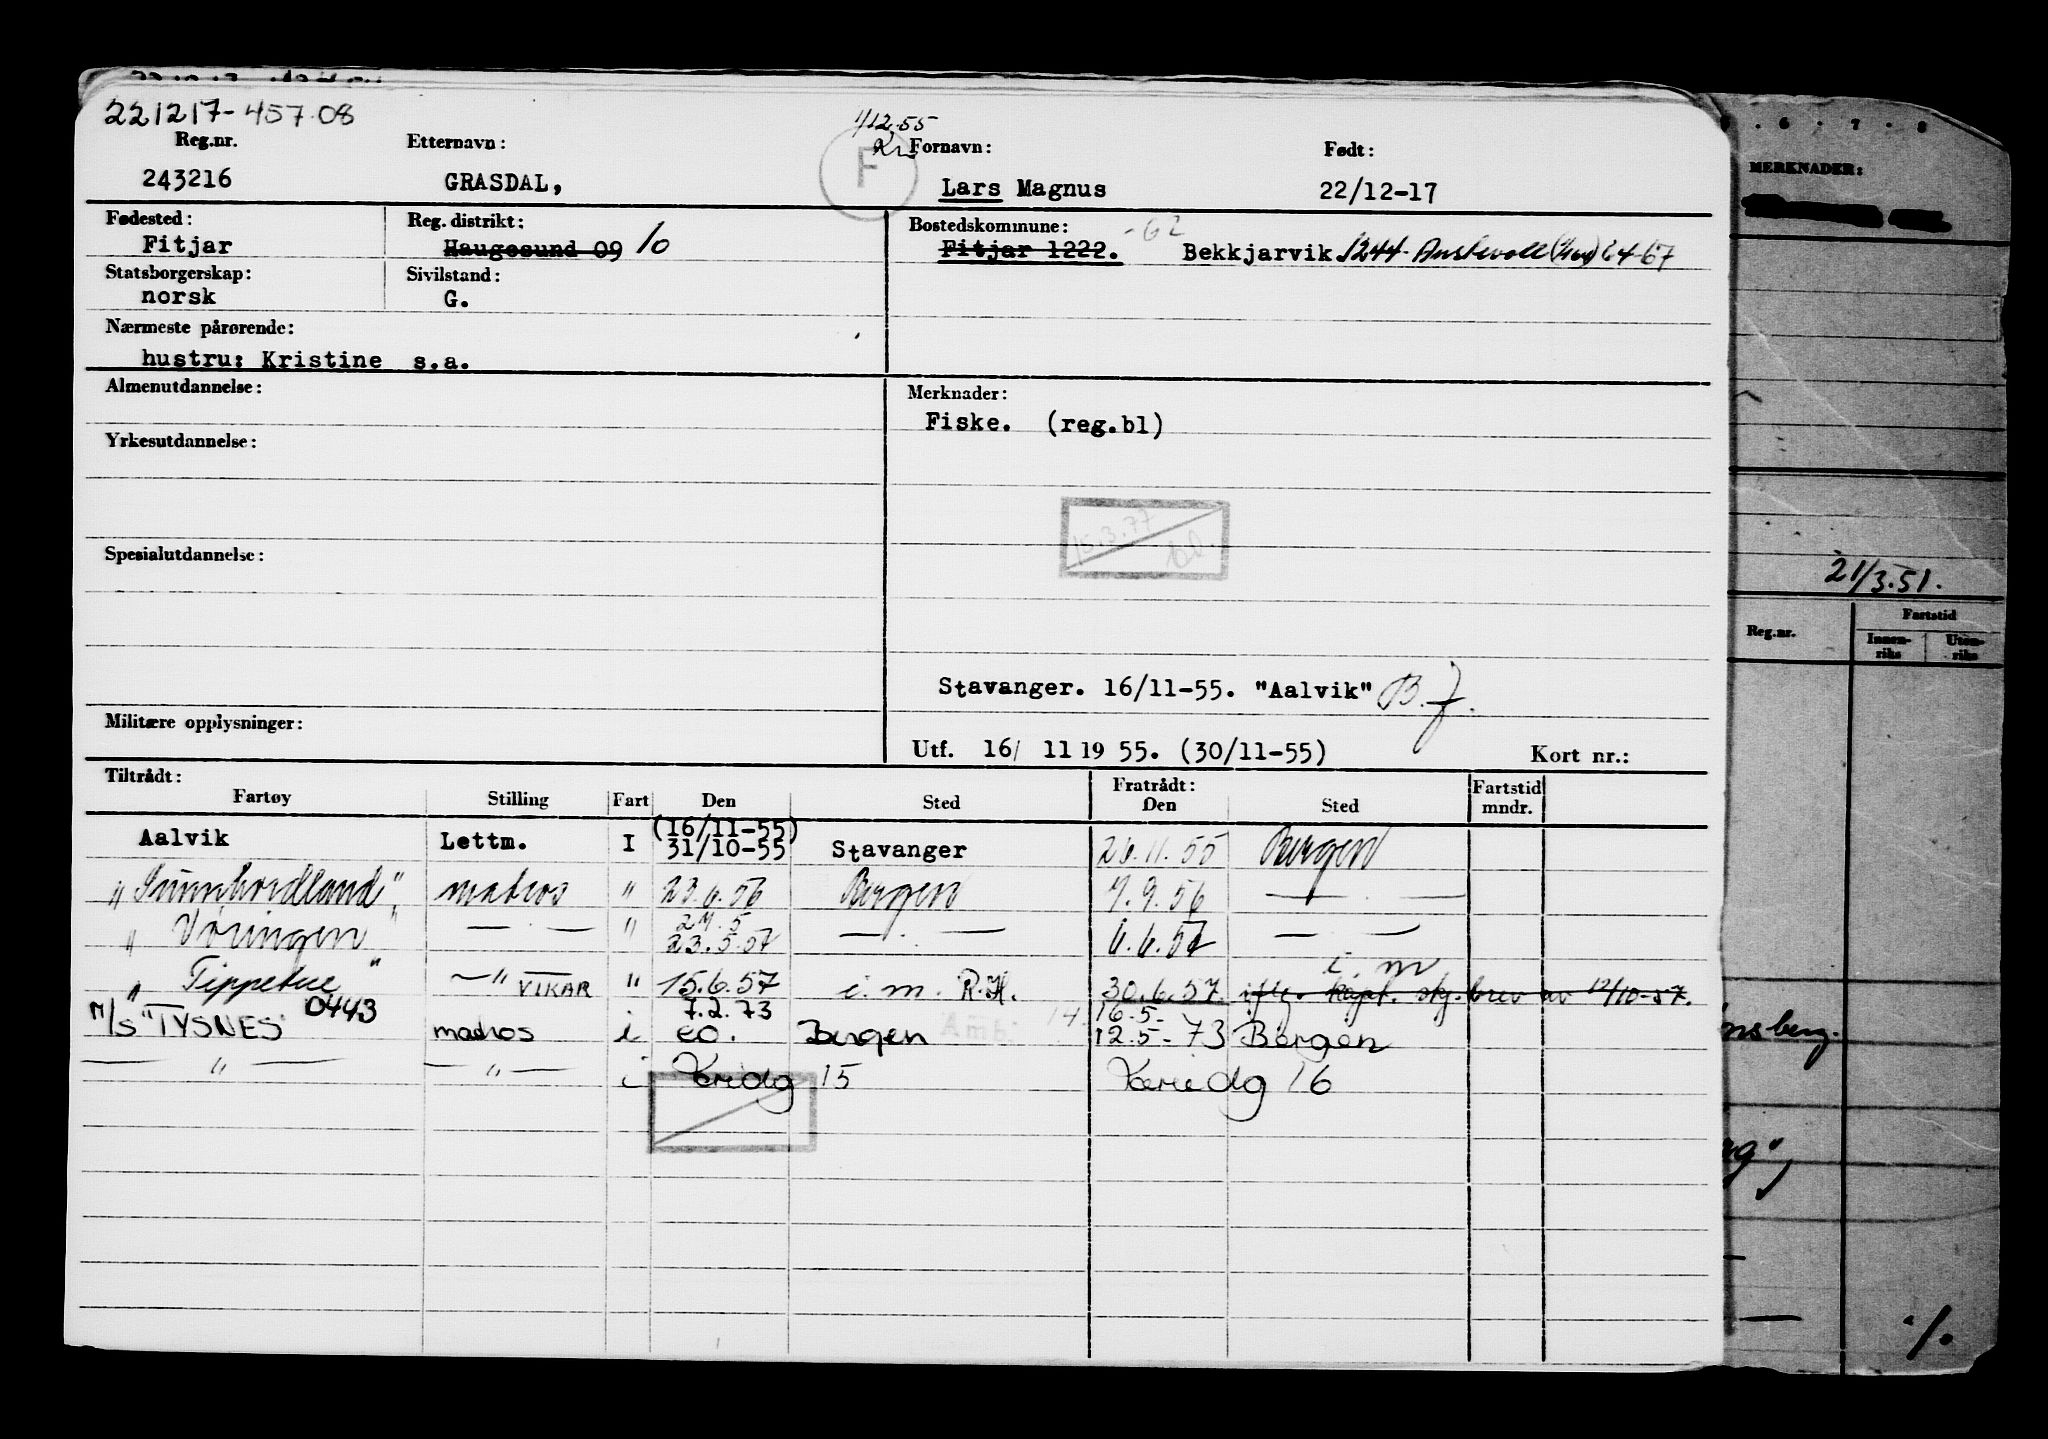 221217-45708
1/12-55
Reg.nr. Etternavn: Fornavn: Født:
F
243216 GRASDAL, Lars Magnus 22/12-17
Fødested: Reg. distrikt: Bostedskommune: -62
Fitjar Haugesund 09 10 Fitjar 1222. Bekkjarvik 1244- Austevoll 64-67
Statsborgerskap: Sivilstand:
norsk G.
Nærmeste pårørende:
hustru: Kristine s.a.
Almenutdannelse: Merknader:
Fiske. (reg.bl)
Yrkesutdannelse:
15.3.77
Spesialutdannelse:
Stavanger. 16/11-55. "Aalvik" B.J.
Militære opplysninger:
Utf. 16/ 11 19 55. (30/11-55) Kort nr.:
Tiltrådt: Fratrådt:
Fartøy Stilling Fart Den Sted Den Sted Fartstid mndr.
(16/11-55)
Aalvik Lettm. I 31/10-55 Stavanger 26.11.55 Bergen
"Sunnhordland" matros " 23.6.56 Bergen 7.9.56 — . —
24.5
"Vøringen" — . — " 23.5.57 — . — 6.6.57 — . —
i. m
"Tippetue" — " VIKAR " 15.6.57 i. m. R.H. 30.6.57. iflg. kapt. skj. brev av 12/10-57.
0443 7.2.73 16.5.
M/S "TYSNES" matros i eo. Bergen 12.5-73 Bergen
— " — — " — i Kridg 15 Kridg 16
6 . 7 . 8
MERKNADER:
21/3.51.
Reg.nr. Fartstid
Innen-riks Uten-riks
nsberg.
rg"
—
— ./.